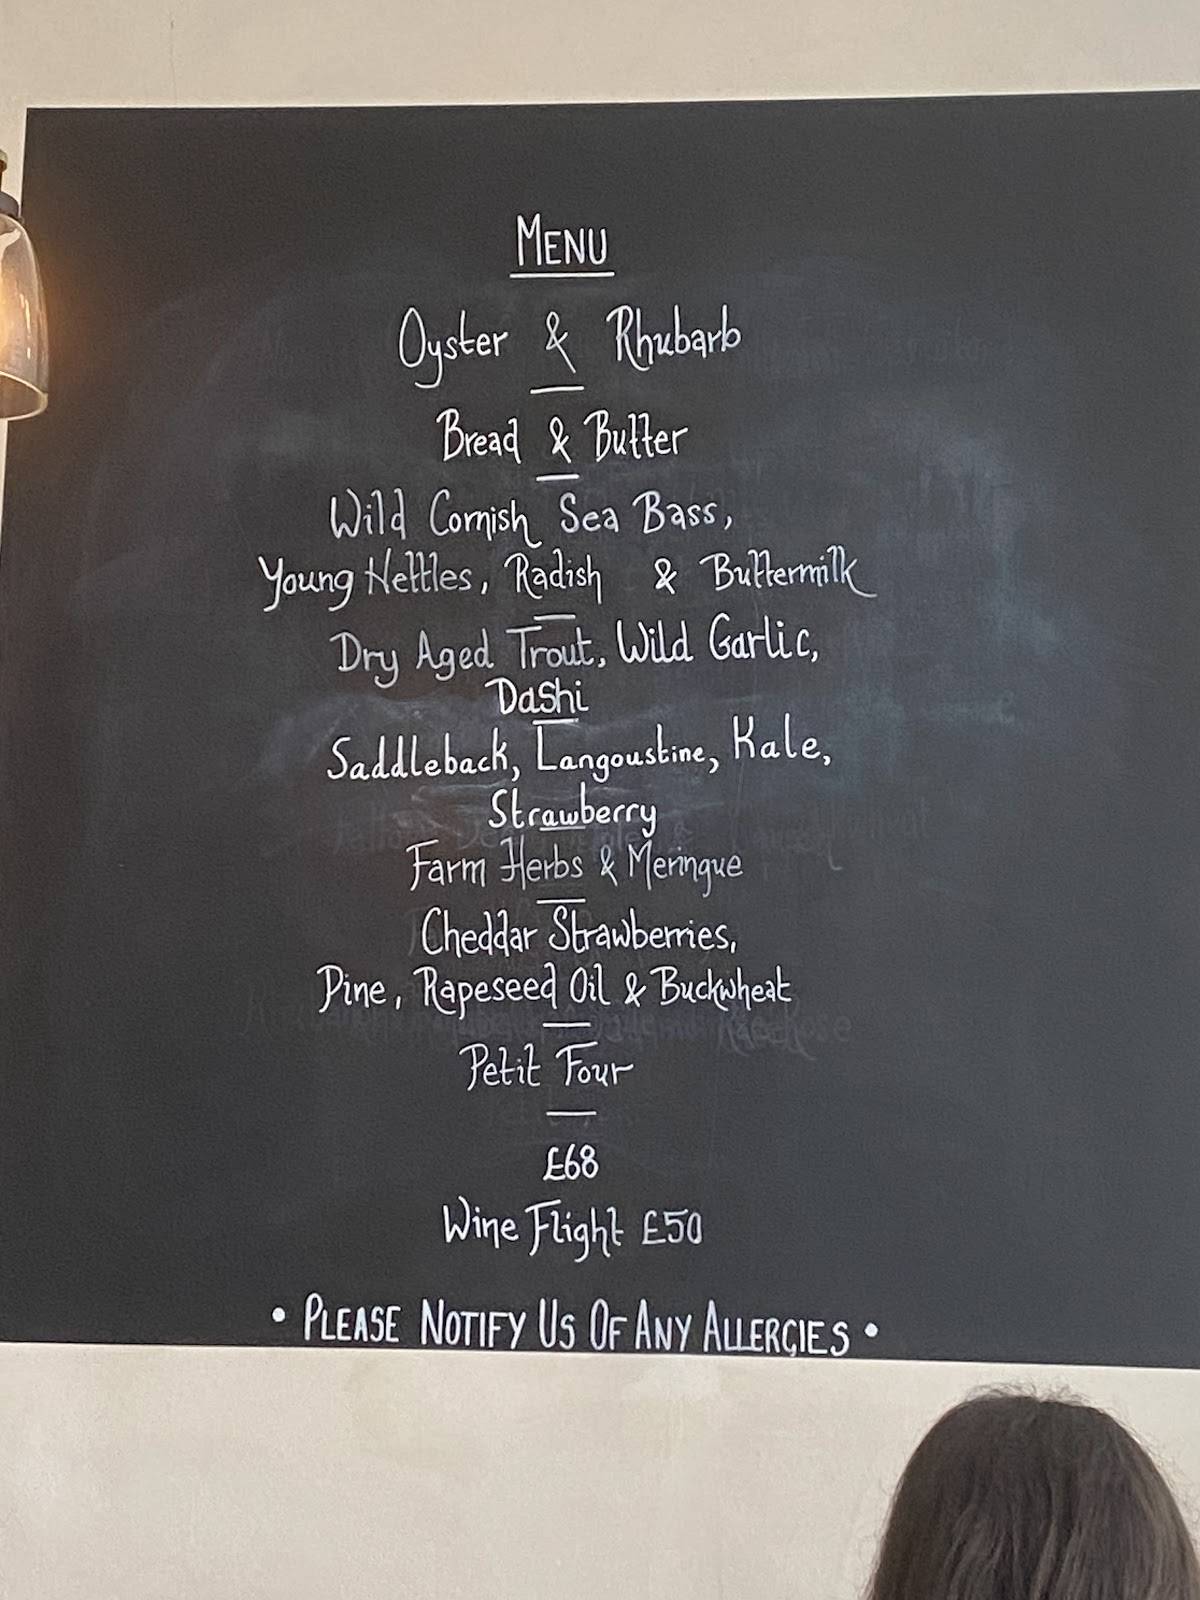 MENU
Oyster & Rhubarb
Bread & Butter
Wild Cornish Sea Bass,
Young Nettles, Radish & Buttermilk
Dry Aged Trout, Wild Garlic,
Dashi
Saddleback, Langoustine, Kale,
Strawberry
Farm Herbs & Meringue
Cheddar Strawberries,
Pine, Rapeseed Oil & Buckwheat
Petit Four
£68
Wine Flight £50
• PLEASE NOTIFY US OF ANY ALLERGIES •